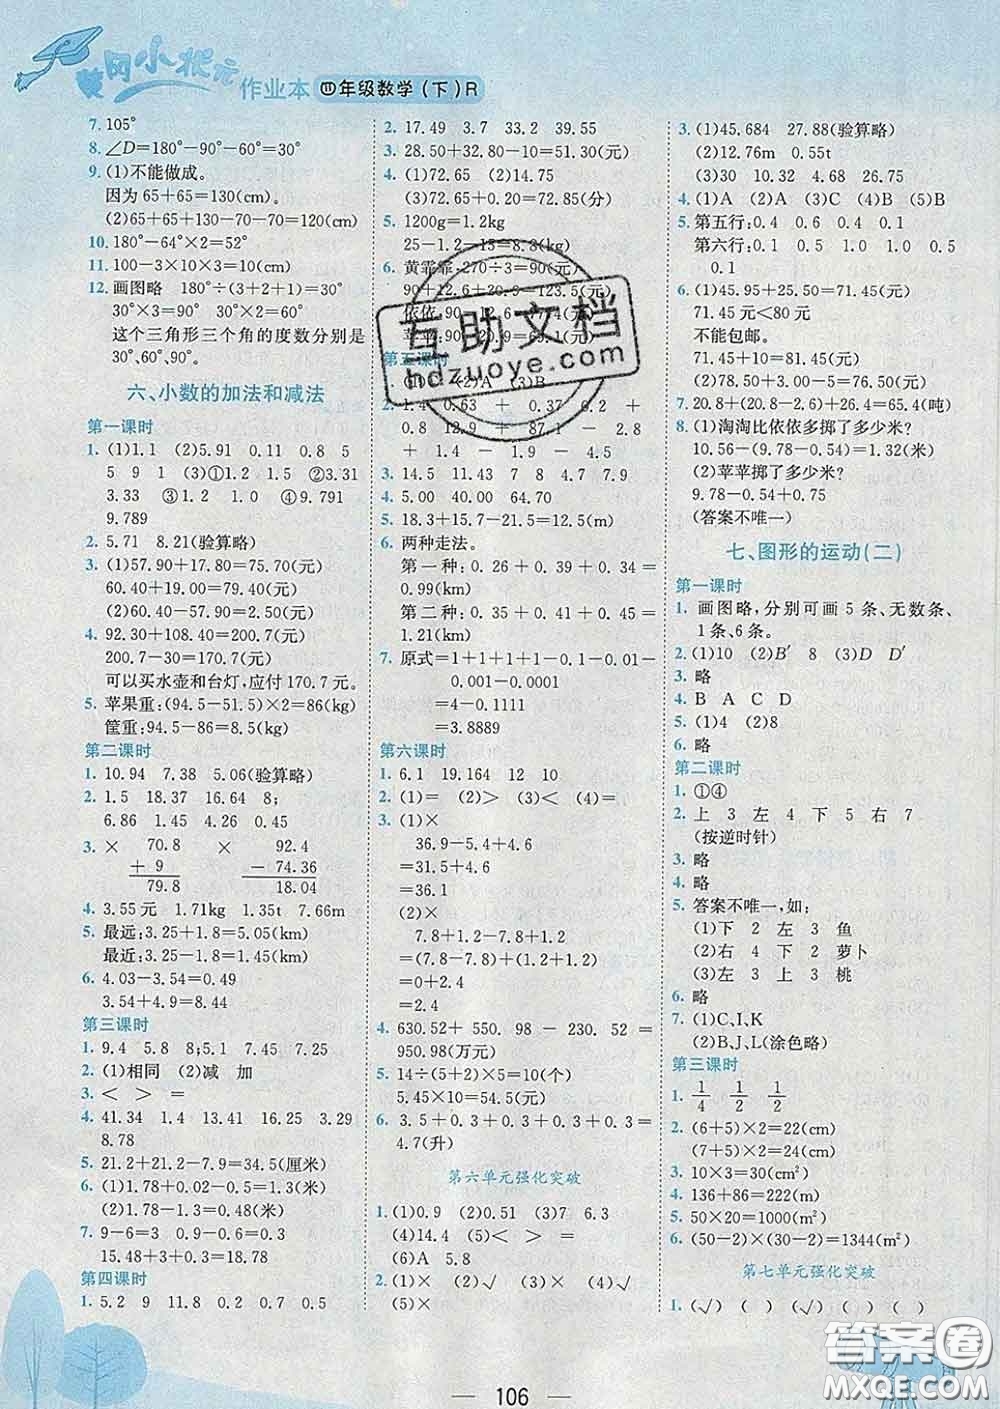 黄冈小状元
作业本 四年级数学(下)R
7. 105°
8. ∠D=180°-90°-60°=30°
9. (1)不能做成。
因为65+65=130(cm)。
(2)65+65+130-70-70=120(cm)
10. 180°-64°×2=52°
11. 100-3×10×3=10(cm)
12. 画图略 180°÷(3+2+1)=
30° 30°×3=90° 30°×2=60°
这个三角形三个角的度数分别是
30°、60°、90°。
六、小数的加法和减法
第一课时
1. (1)1.1 (2)5.91 0.11 0.8 5
5 9 1 (3)①1.2 1.5 ②3.31
3.33 ③1.2 1.0 ④9.791
9.789
2. 5.71 8.21(验算略)
3. (1)57.90+17.80=75.70(元)
60.40+19.40=79.80(元)
(2)60.40-57.90=2.50(元)
4. 92.30+108.40=200.7(元)
200.7-30=170.7(元)
可以买水壶和台灯,应付170.7元。
5. 苹果重:(94.5-51.5)×2=86(kg)
筐重:94.5-86=8.5(kg)
第二课时
1. 10.94 7.38 5.06(验算略)
2. 1.5 18.37 16.64 8;
6.86 1.45 4.26 0.45
3. × 70.8 × 92.4
+ 9 - 74.36
79.8 18.04
4. 3.55元 1.71kg 1.35t 7.66m
5. 最远:3.25+1.8=5.05(km)
最近:3.25-1.8=1.45(km)
6. 4.03-3.54=0.49
3.54+4.9=8.44
第三课时
1. 9.4 5.8 8; 5.45 7.45 7.25
2. (1)相同 (2)减 加
3. < > =
4. 41.34 1.4 13.41 16.25 3.29
8.78
5. 21.2+21.2-7.9=34.5(厘米)
6. (1)1.78+0.02=1.8(米)
(2)1.8-1.3=0.5(米)
7. 9-6=3 0.9-0.6=0.3
15.48+3+0.3=18.78
第四课时
1. 5.2 9 11.8 0.2 0.7 0.54
2. 17.49 3.7 33.2 39.55
3. 28.50+32.80-10=51.30(元)
4. (1)72.65 (2)14.75
(3)72.65+0.20=72.85(分)
5. 1200g=1.2kg
25-1.2-15=8.8(kg)
6. 黄霏霏:270÷3=90(元)
90+12.6+20.9=123.5(元)
第五课时
(2)A (3)B
2. 1.4 0.63 + 0.37 6.2 +
0.8 12.9 + 87.1 - 2.8
+ 1.4 - 1.9 - 4.5
3. 14.5 11.43 7 8 4.7 7.9
4. 5.00 40.00 64.70
5. 18.3+15.7-21.5=12.5(m)
6. 两种走法。
第一种:0.26+0.39+0.34=
0.99(km)
第二种:0.35+0.41+0.45=
1.21(km)
7. 原式=1+1+1+1-0.1-0.01-
0.001-0.0001
=4-0.1111
=3.8889
第六课时
1. 6.1 19.164 12 10
2. (1)= (2)> (3)< (4)=
3. (1)×
36.9-5.4+4.6
=31.5+4.6
=36.1
(2)×
7.8+1.2-7.8+1.2
=(7.8-7.8)+(1.2+1.2)
=0+2.4
=2.4
4. 630.52+550.98-230.52=
950.98(万元)
5. 14÷(5+2)×5=10(个)
5.45×10=54.5(元)
6. 3.5+0.3+0.3+0.3+0.3=
4.7(升)
第六单元强化突破
1. (1)0.9 (2)0.51 (3)7 6.3
(4)14.4 (5)< > =
(6)A 5.8
2. (1)× (2)√ (3)× (4)√
(5)×
3. (1)45.684 27.88(验算略)
(2)12.76m 0.05t
(3)30 10.32 4.68 26.75
4. (1)A (2)A (3)C (4)B (5)B
5. 第五行:0.4 0.6 0.4 0.1
第六行:0.1 0.5 1.0 1.0 0.5
0.1
6. (1)45.95+25.50=71.45(元)
71.45元<80元
不能包邮。
71.45+10=81.45(元)
(2)45.95-25.50=20.45(元)
7. 20.8+(20.8-2.6)+26.4=65.4(吨)
8. (1)淘淘比依依多掷了多少米?
10.56-(9.78-0.54)=1.32(米)
(2)苹苹掷了多少米?
9.78-0.54+0.75
(答案不唯一)
七、图形的运动(二)
第一课时
1. 画图略,分别可画5条、无数条、
1条、6条。
2. (1)10 (2)B′ 8 (3)D D′
3. 略
4. B A C D
5. (1)4 (2)8
6. 略
第二课时
1. ①④
2. 上 3 左 4 下 5 右 7
(按逆时针)
3. 略
4. 略
5. 答案不唯一,如:
(1)下 2 左 3 鱼
(2)右 4 下 2 萝卜
(3)左 3 上 3 桃
6. 略
7. (1)C、I、K
(2)B、J、L(涂色略)
第三课时
1. 1/4 1/2 1/2
2. (6+5)×2=22(cm)
(6+5)×2=22(cm)
3. 10×3=30(cm²)
4. 136+86=222(m)
5. 50×20=1000(m²)
6. (50-2)×(30-2)=1344(m²)
第七单元强化突破
1. (√) ( ) ( ) (√) (√)
106
互助文档
hdzuoye.com
答案圈
MXQE.COM